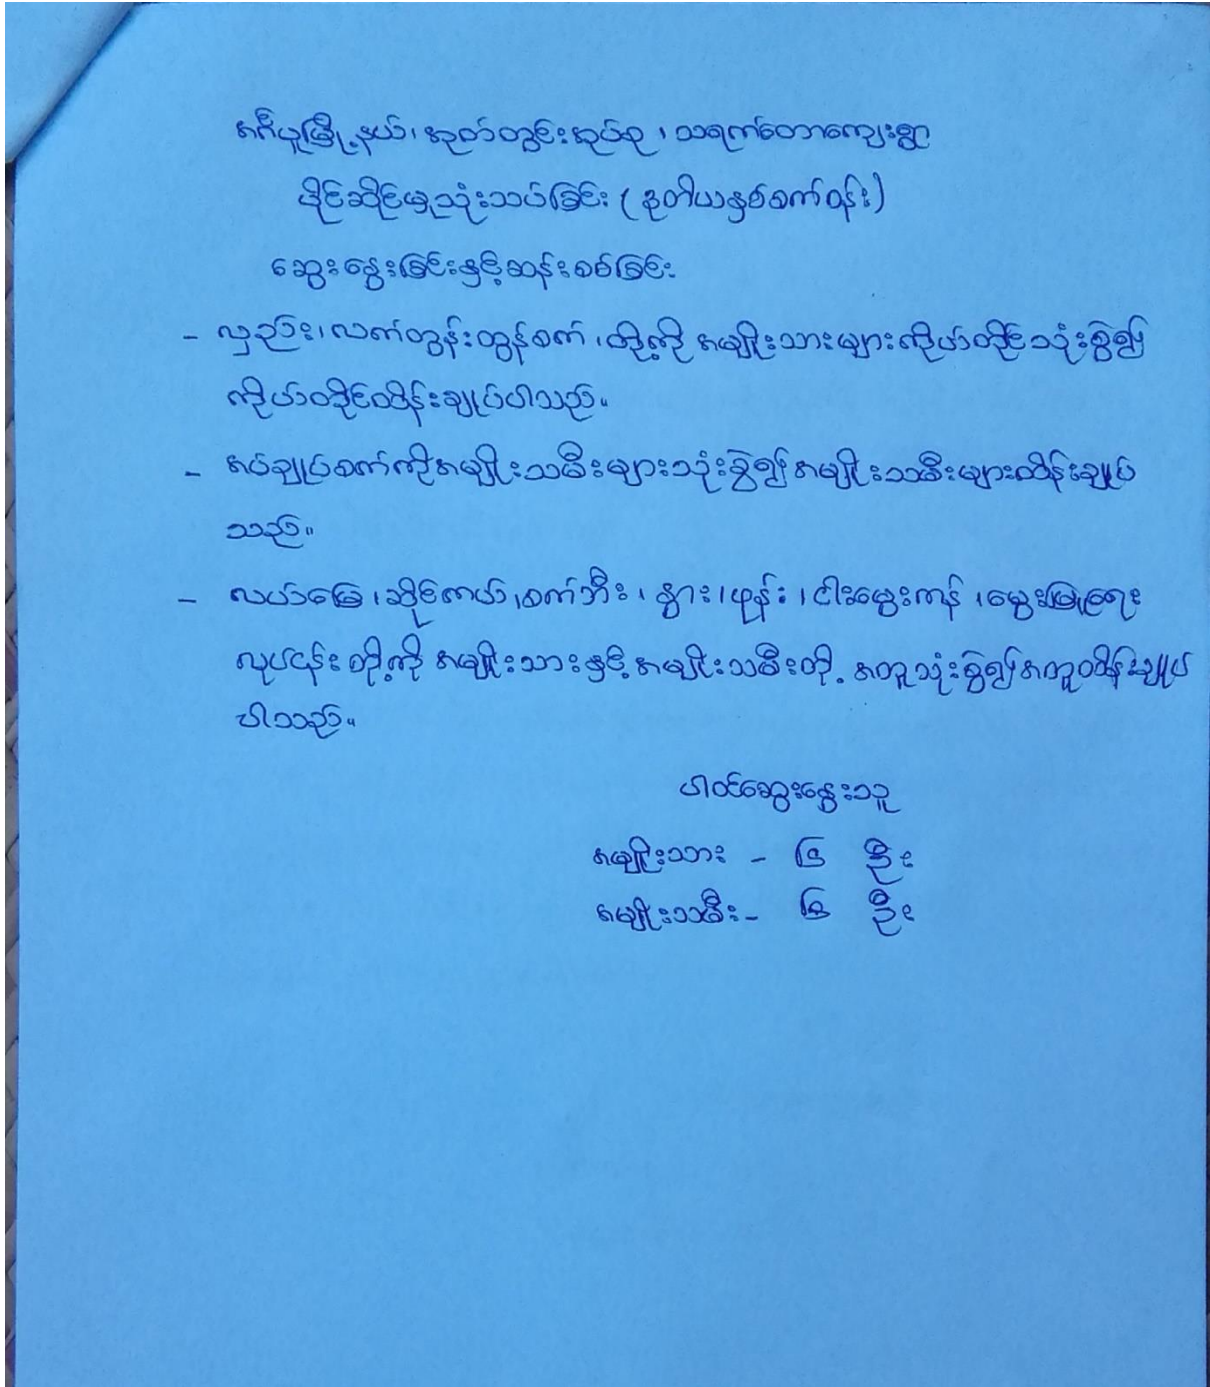 အင်္ဂပူမြို့နယ်၊ အုတ်တွင်းအုပ်စု ၊ သရက်တောကျေးရွာ
ပိုင်ဆိုင်မှုသုံးသပ်ခြင်း ( ဒုတိယနှစ်စက်ဝန်း )
ဆွေးနွေးခြင်းနှင့်ဆန်းစစ်ခြင်း
- လှည်း၊ လက်တွန်းထွန်စက် ၊ တို့ကို အမျိုးသားများကိုယ်တိုင်သုံးစွဲ၍
ကိုယ်တိုင်ထိန်းချုပ်ပါသည်။
- အပ်ချုပ်စက်ကိုအမျိုးသမီးများသုံးစွဲ၍အမျိုးသမီးများထိန်းချုပ်
သည်။
- လယ်မြေ ၊ ဆိုင်ကယ် ၊ စက်ဘီး ၊ နွား ၊ ဖုန်း ၊ ငါးမွေးကန် ၊ မွေးမြူရေး
လုပ်ငန်း တို့ကို အမျိုးသားနှင့်အမျိုးသမီးတို့ အတူသုံးစွဲ၍အတူထိန်းချုပ်
ပါသည်။
ပါဝင်ဆွေးနွေးသူ
အမျိုးသား - ဦး
အမျိုးသမီး - ဦး